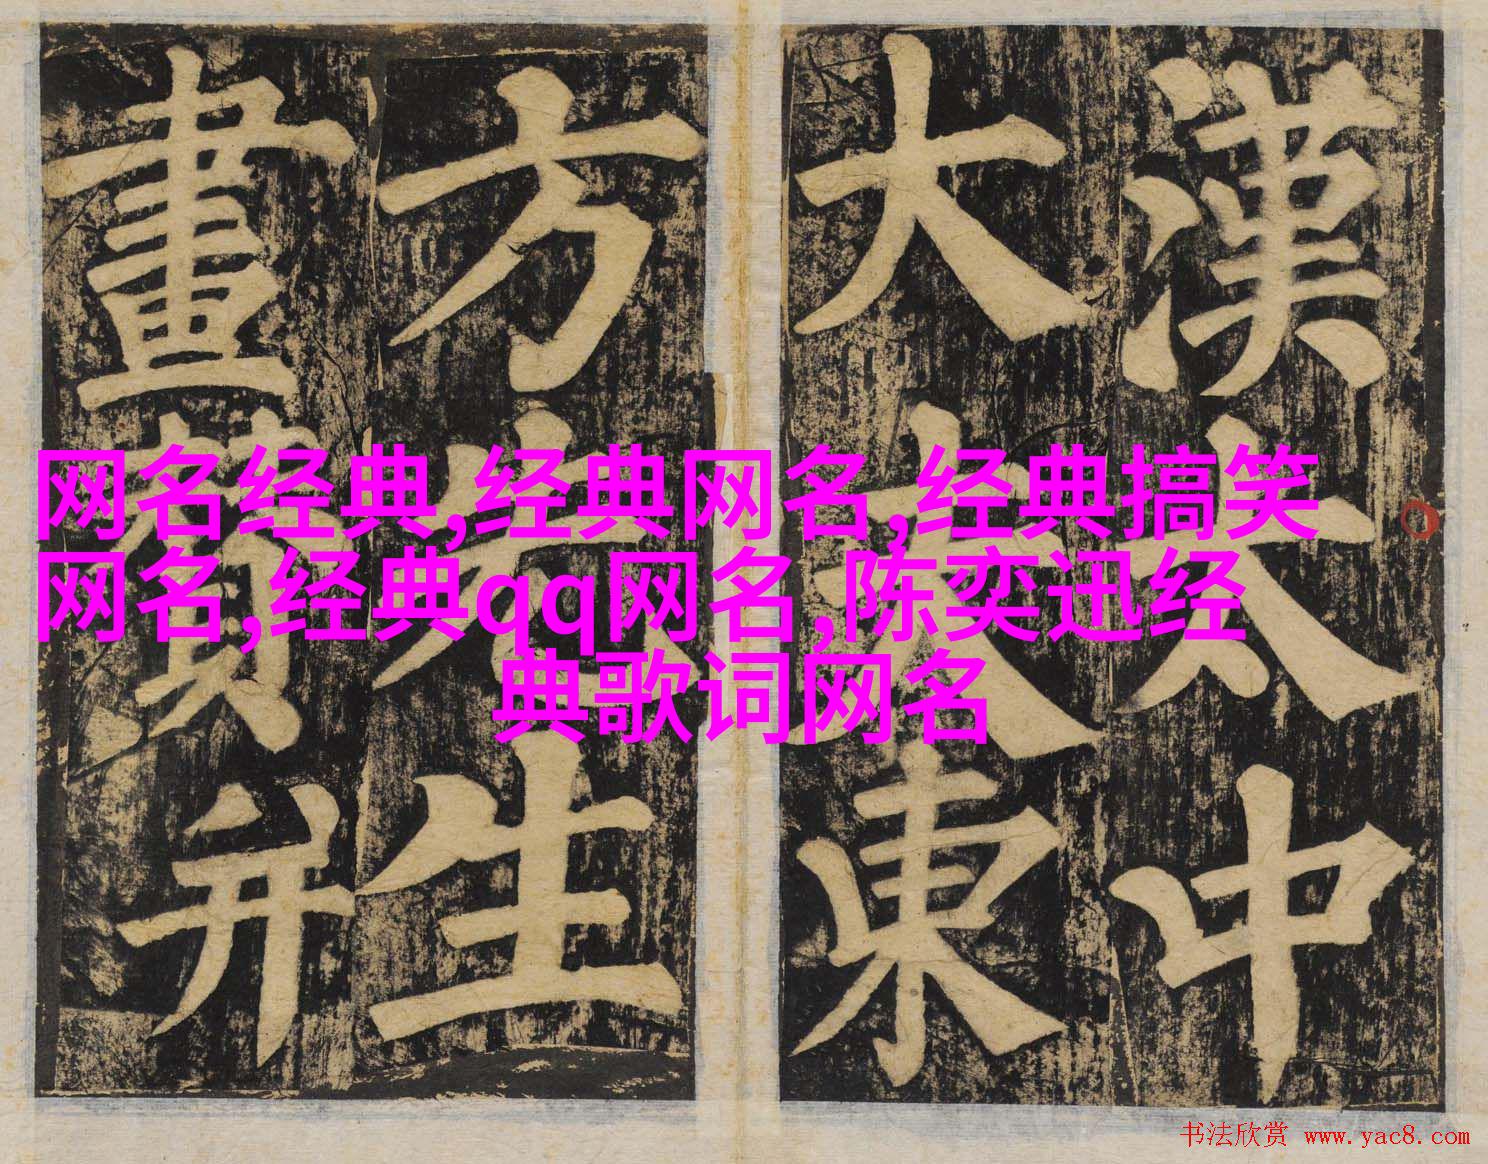 漢太中
大夫東
方先生
畫贊并
网名经典,经典网名,经典搞笑
网名,经典qq网名,陈奕迅经
典歌词网名
书法欣赏 www.yac8.com